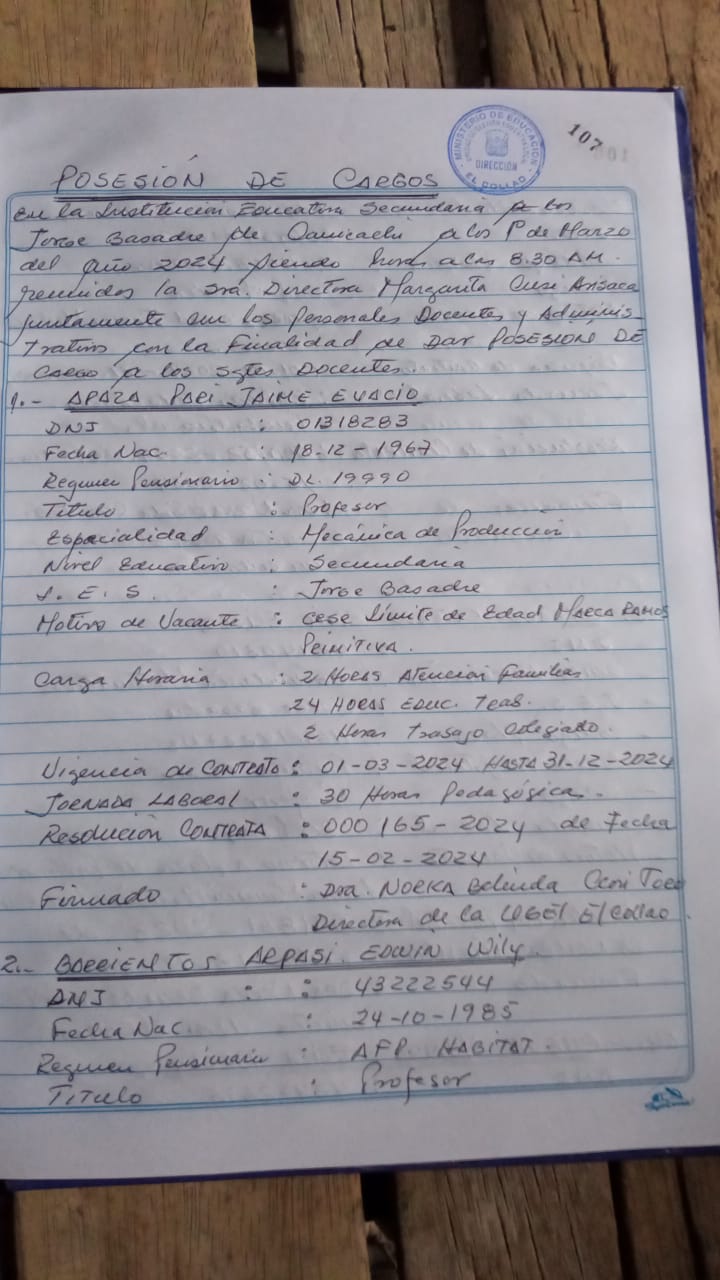 MINISTERIO DE EDUCACIÓN
DIRECCIÓN
EL COLLAO
107
POSESIÓN DE CARGOS
En la Institución Educativa Secundaria
Jorge Basadre de Camicachi a los 1º de Marzo
del año 2024 siendo horas a las 8.30 AM.
reunidos la Sra. Directora Margarita Cusi
juntamente con los Personales Docentes y Adminis
trativos con la Finalidad de DAR POSESIÓN DE
CARGO a los Sgtes Docentes.
1.- APAZA PARI JAIME EVACIO
DNI : 01318283
Fecha Nac. : 18-12-1967
Regimen Pensionario : DL. 19990
Titulo : Profesor
Especialidad : Mecánica de Producción
Nivel Educativo : Secundaria
I.E.S. : Jorge Basadre
Motivo de Vacante : Cese Límite de Edad MARCA RAMOS
PRIMITIVA.
Carga Horaria : 2 Horas Atención Familias
24 HORAS EDUC. TRAB.
2 Horas trabajo Colegiado.
Vigencia de CONTRATO : 01-03-2024 HASTA 31-12-2024
JORNADA LABORAL : 30 Horas Pedagógicas.
Resolución CONTRATA : 000165-2024 de Fecha
15-02-2024
Firmado : Dra. NORKA Belinda Ccori Toro
Directora de la UGEL El Collao
2.- BARRIENTOS ARPASI EDWIN Wily.
DNI : : 43222544
Fecha Nac : 24-10-1985
Regimen Pensionario : AFP. HABITAT.
TITULO : Profesor